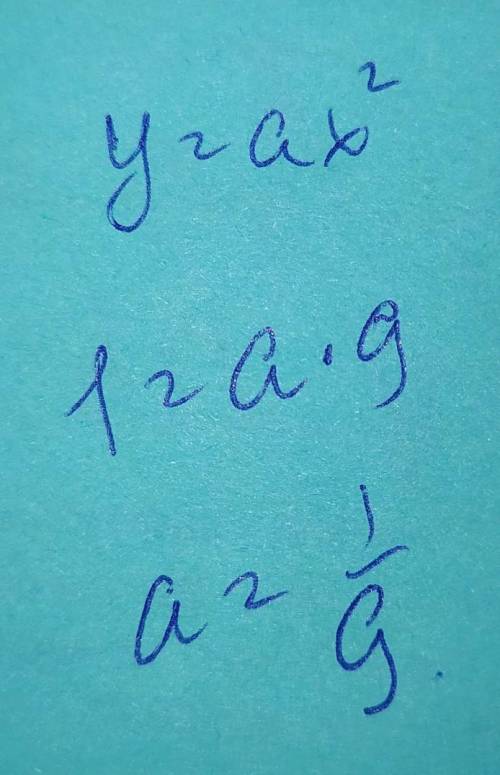 y = ax²
1 = a · 9
a = 1/9.